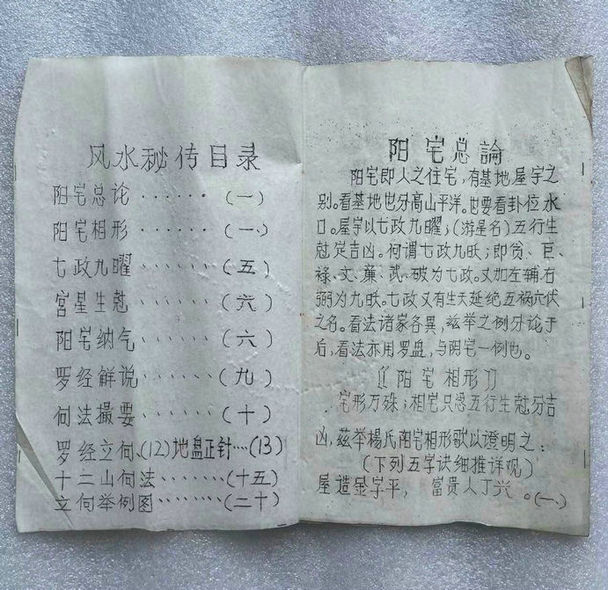 风水秘传目录
阳宅总论······(一)
阳宅相形······(一)
七政九曜······(五)
宫星生尅······(六)
阳宅纳气······(六)
罗经解说······(九)
向法撮要······(十)
罗经立向、(12)地盘正针···(13)
十二山向法·······(十五)
立向举例图·······(二十)
阳宅总論
阳宅即人之住宅,有基地屋宇之
别。看基地也分高山平洋。也要看卦位水
口。屋宇以七政九曜;(游星名)五行生
尅定吉凶。何谓七政九旺;即贪、巨、
禄、文、廉、武、破为七政。又加左辅右
弼为九旺。七政又有生天延绝五祸六伏
之名。看法诸家各異,兹举之例分论于
后,看法亦用罗盘,与阴宅一例也。
〖阳宅相形〗
宅形万殊;相宅只思五行生尅分吉
凶,兹举楊氏阳宅相形歌以證明之:
(下列五字诀细推详观)
屋造金字平, 富贵人丁兴。(一)